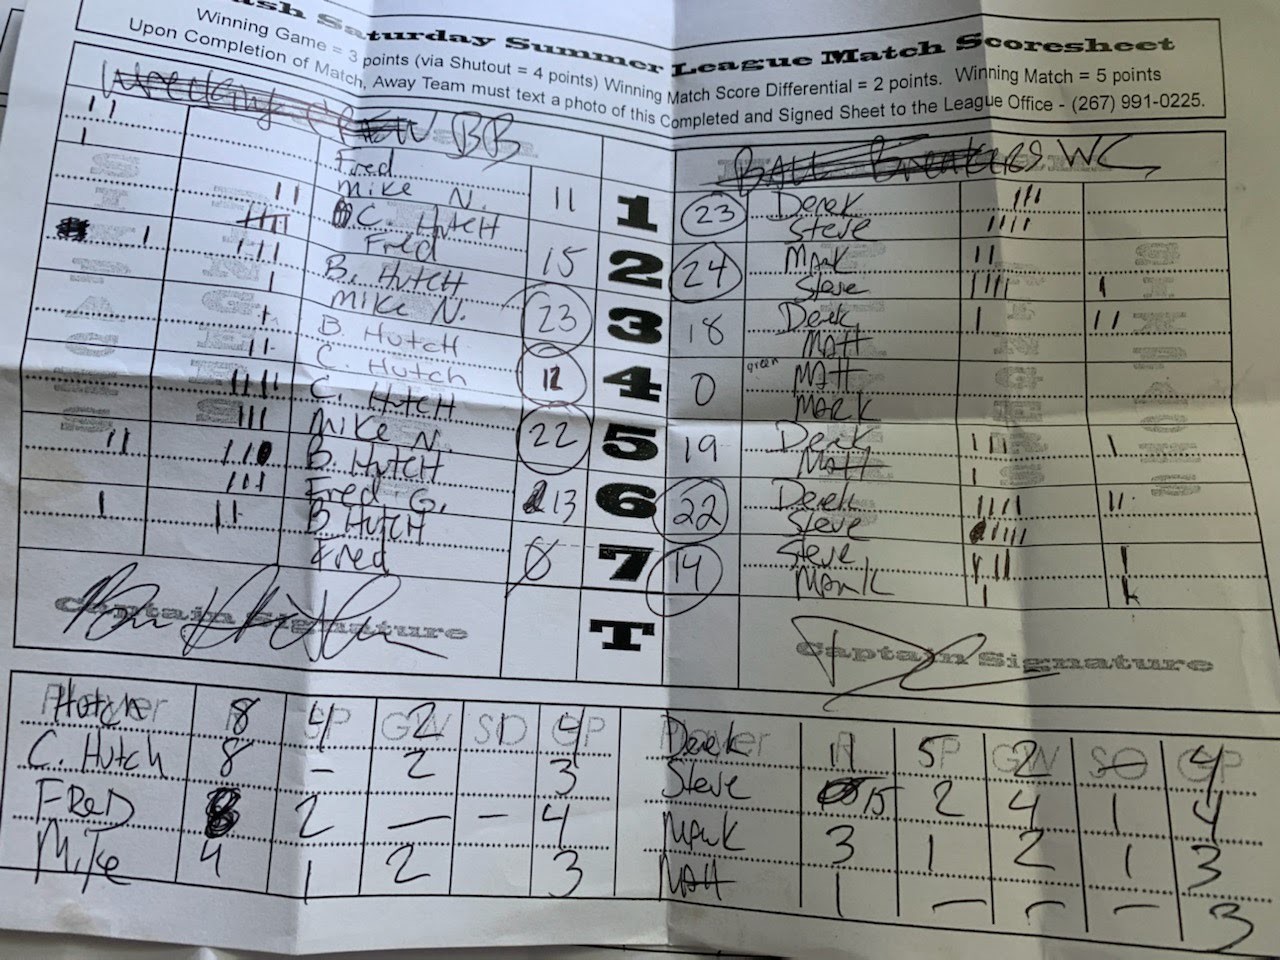 ash Saturday Summer League Match Scoresheet
Winning Game = 3 points (via Shutout = 4 points) Winning Match Score Differential = 2 points. Winning Match = 5 points
Upon Completion of Match, Away Team must text a photo of this Completed and Signed Sheet to the League Office - (267) 991-0225.
BB
BALL Breakers WC
Fred
Mike N. 11 1 23 Derek
Steve
C. Hutch
Fred 15 2 24 Mark
Steve
B. Hutch
Mike N. 23 3 18 Derek
Matt
B. Hutch
C. Hutch 12 4 0 green Matt
Mark
C. Hutch
Mike N. 22 5 19 Derek
Matt
B. Hutch
Fred G. 13 6 22 Derek
Steve
B. Hutch
Fred 0 7 14 Steve
Mark
T
Captain Signature Captain Signature
Player R SP GW SO GP Player R SP GW SO GP
Hutch 8 4 2 4 Derek 11 5 2 - 4
C. Hutch 8 - 2 3 Steve 15 2 4 1 4
FReD 8 2 - - 4 Mark 3 1 2 1 3
Mike 4 1 2 3 Matt 1 - - - 3